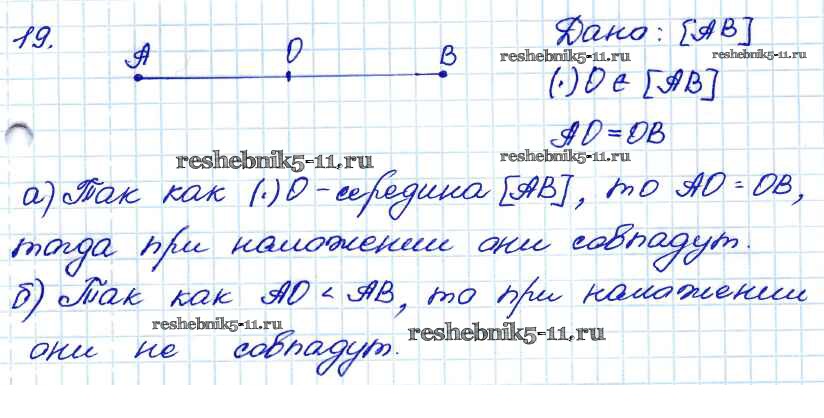 19.
A O B
Дано: [AB]
reshebnik5-11.ru reshebnik5-11.ru
(.) O ∈ [AB]
AO = OB
reshebnik5-11.ru reshebnik5-11.ru
а) Так как (.) O - середина [AB], то AO = OB,
тогда при наложении они совпадут.
б) Так как AO < AB, то при наложении
reshebnik5-11.ru reshebnik5-11.ru
они не совпадут.